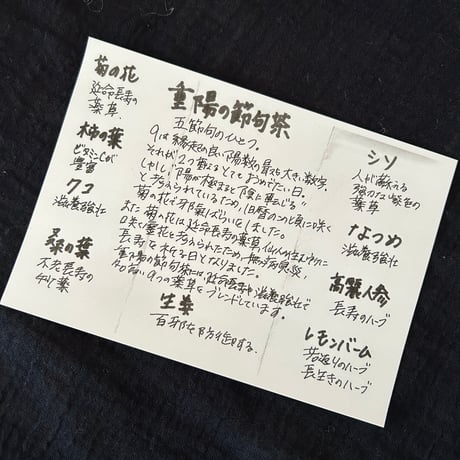 重陽の節句茶
五節句のひとつ。
9は縁起の良い陽数の最も大きい数字。
それが2つ重なるとてもおめでたい日。
しかし「陽が極まると陰に転じる」
と考えられているため、旧暦のこの頃に咲く
菊の花で邪気ばらいをしました。
また菊の花は延命長寿の薬草。仙人が住む所に
咲く霊花と考えられたため、無病息災、
長寿を祈る日となりました。
重陽の節句茶には、延命長寿や滋養強壮で
名高い9つの薬草をブレンドしています。
菊の花
延命長寿の
薬草
柿の葉
ビタミンCが
豊富
クコ
滋養強壮
桑の葉
不老長寿の
妙薬
生姜
百邪を防御する。
シソ
人が蘇える
強力な紫色の
薬草
なつめ
滋養強壮
高麗人参
長寿のハーブ
レモンバーム
若返りのハーブ
長生きのハーブ